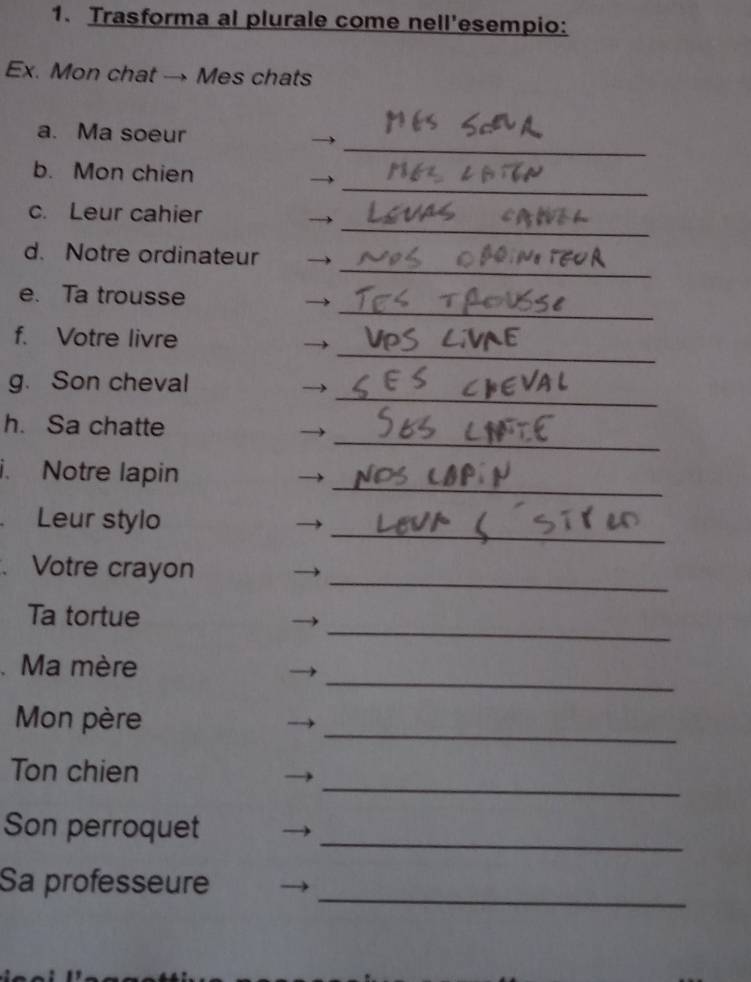 1. Trasforma al plurale come nell'esempio:
Ex. Mon chat → Mes chats
a. Ma soeur → MES SOEUR
b. Mon chien → MES
c. Leur cahier → LEURS
d. Notre ordinateur → NOS ORDINATEUR
e. Ta trousse → TES TROUSSE
f. Votre livre → VOS LIVRE
g. Son cheval → SES CHEVAL
h. Sa chatte → SES
i. Notre lapin → NOS LAPIN
. Leur stylo → LEUR S
. Votre crayon →
Ta tortue →
. Ma mère →
Mon père →
Ton chien →
Son perroquet →
Sa professeure →